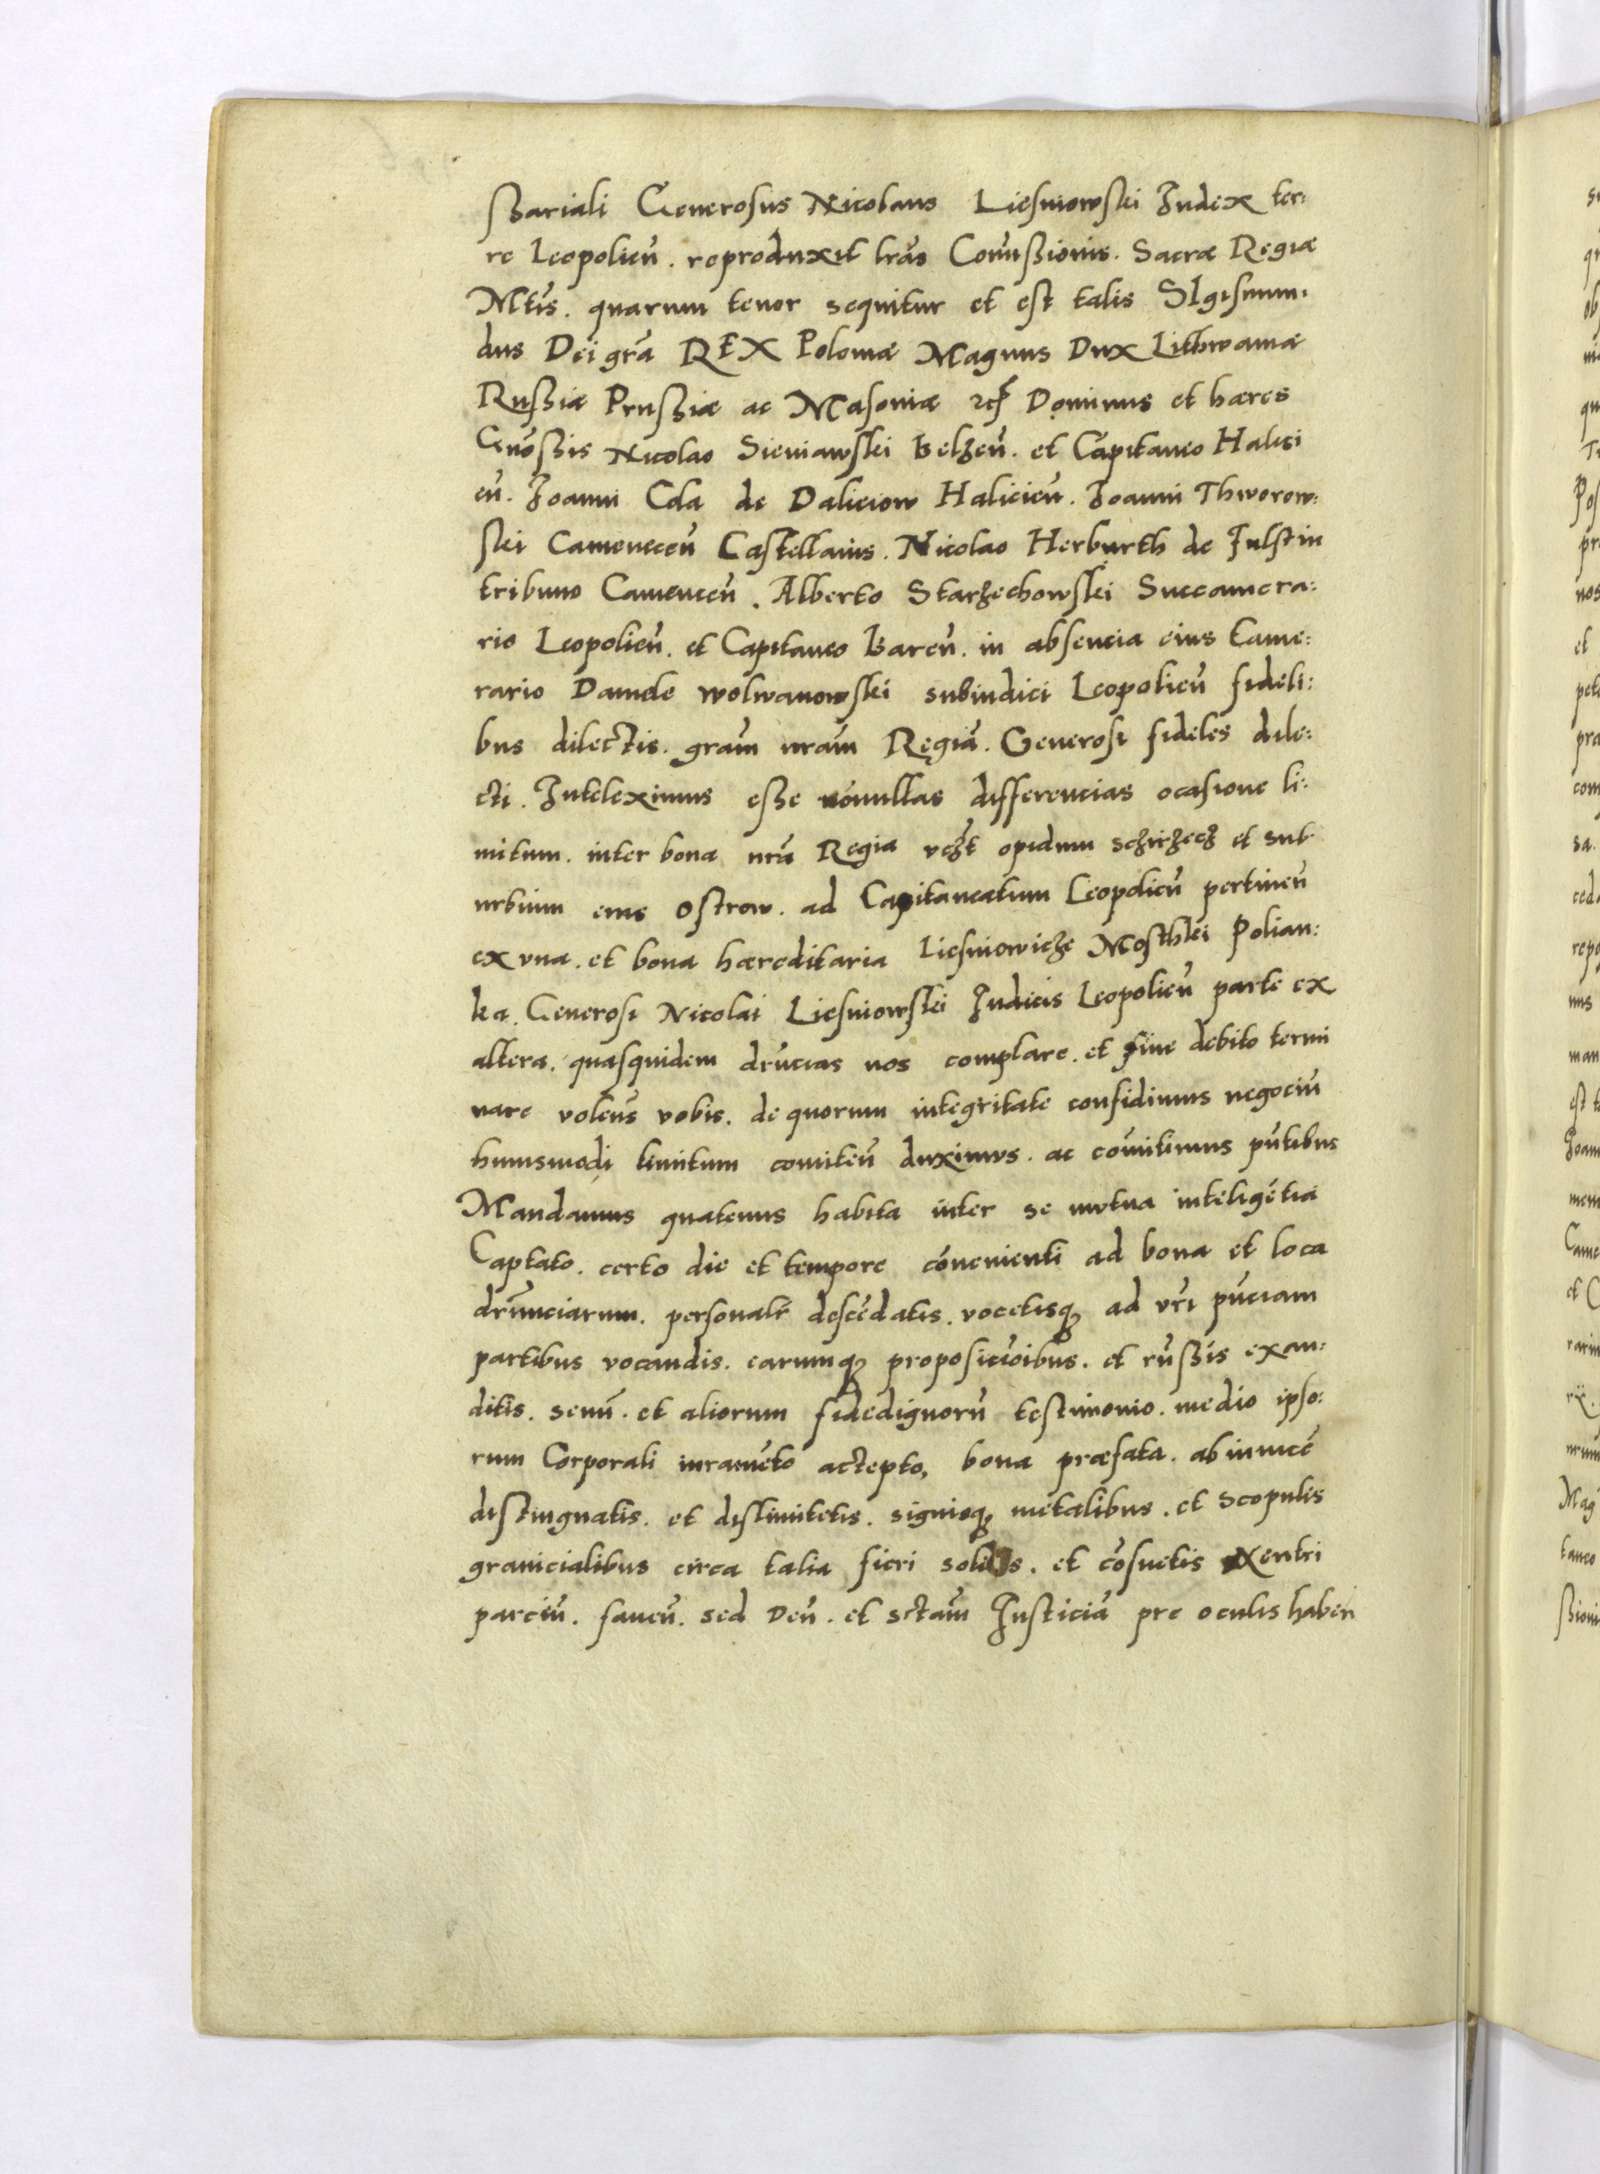 ßariali Generosus Nicolaus Liesniowski Iudex ter:
re Leopolien̄. reproduxit lr̄as Com̄ißionis. Sacræ Regiæ
Mtis. quarum tenor sequitur et est talis SIgismun:
dus Dei gr̄a REX Poloniæ Magnus Dux Lithwaniæ
Rußiæ Prußiæ ac Masoniæ Dominus et hæres
Gn̄oßis Nicolao Sieniawski Belzen̄. et Capitaneo Halici
en̄. Ioanni Cola de Daliciow Halicien̄. Ioanni Thworow:
ski Camenecen̄ Castellanis. Nicolao Herburth de Fulstin
tribuno Camenecen̄. Alberto Starzechowski Succamera:
rio Leopolien̄. et Capitaneo Baren̄. in absencia eius Came:
rario Daniele wolwanowski subiudici Leopolien̄ fideli:
bus dilectis. gram nram Regiā. Generosi fideles dile:
cti. Inteleximus eße nōnullas differencias ocasione li:
mitum. inter bona nrā Regia vczt opidum Sczirzecz et sub
urbium eius Ostrow. ad Capitaneatum Leopolien̄ pertinen̄
ex vna. et bona hæreditaria Liesniowicze Mosthki Polian:
ka. Generosi Nicolai Liesniowski Iudicis Leopolien̄ parte ex
altera. quasquidem dr̄ncias nos complare. et fine debito termi
nare volens vobis. de quorum integritate confidimus negociū
huiusmodi limitum comiten̄ duximus. ac com̄itimus pn̄tibus
Mandamus quatenus habita inter se mutua inteligētia
Captato. certo die et tempore cōuenienti ad bona et loca
dr̄unciarum. personalr̄ descēdatis. vocetisq; ad vr̄i pn̄ciam
partibus vocandis. earumq; proposicīoibus. et rn̄ßis exau:
ditis. senū. et aliorum fidedignorū testimonio. medio ipso:
rum Corporali iuramēto actepto, bona præfata. ab inuicē
distinguatis. et dislimitetis. signisq; metalibus. et scopulis
granicialibus circa talia fieri solitis. et cōsuetis
parciū. fauen̄. sed Deū. et sctam̄ Iusticiā pre oculis haben